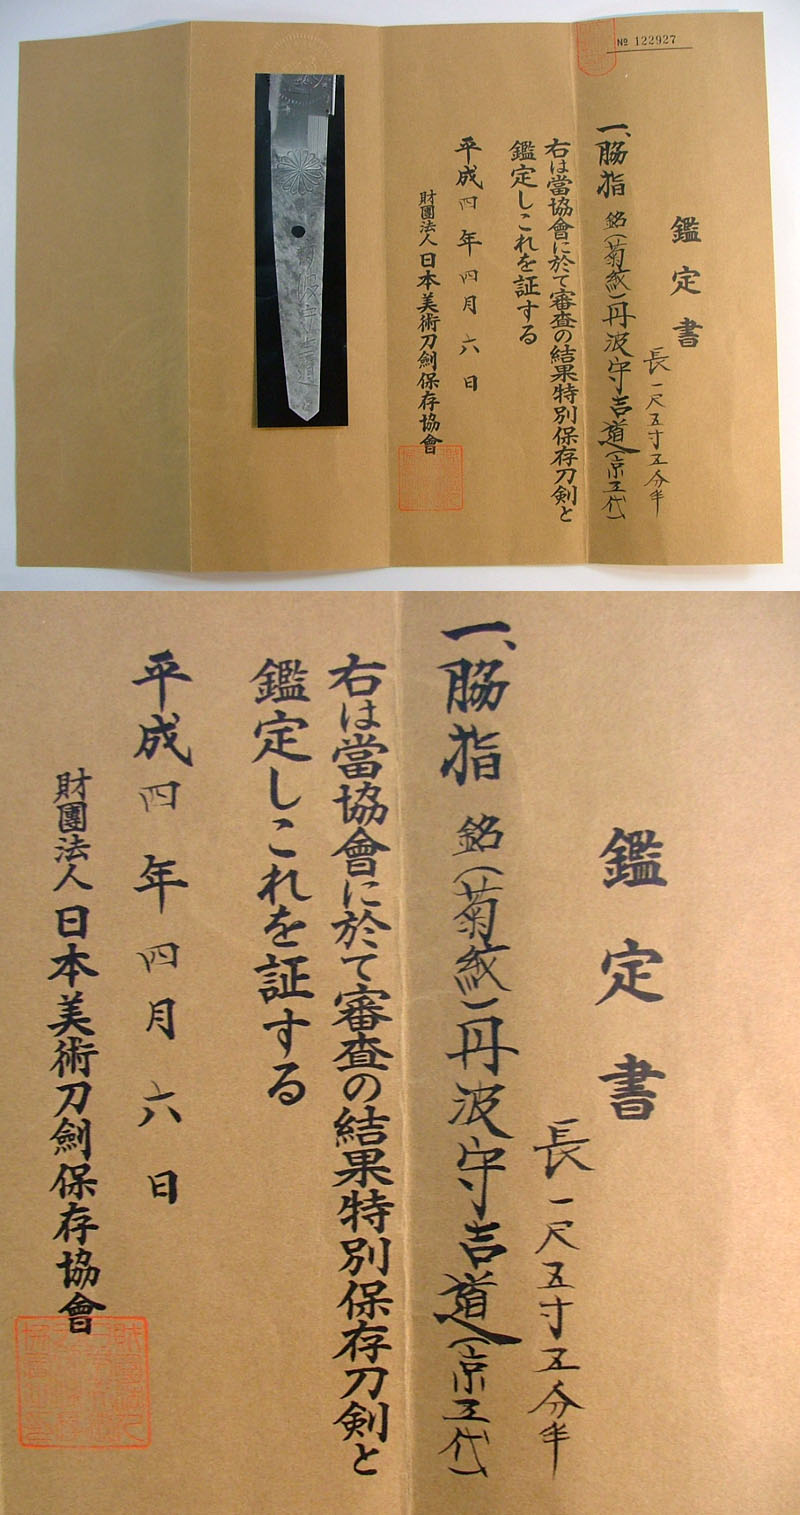 № 122927
鑑定書
長一尺五寸五分半
一、脇指 銘(菊紋)丹波守吉道(京五代)
右は當協會に於て審査の結果特別保存刀剣と
鑑定しこれを証する
平成四年四月六日
財團法人日本美術刀劍保存協會
波守吉道
鑑定書
長一尺五寸五分半
一、脇指 銘(菊紋)丹波守吉道(京五代)
右は當協會に於て審査の結果特別保存刀剣と
鑑定しこれを証する
平成四年四月六日
財團法人日本美術刀劍保存協會